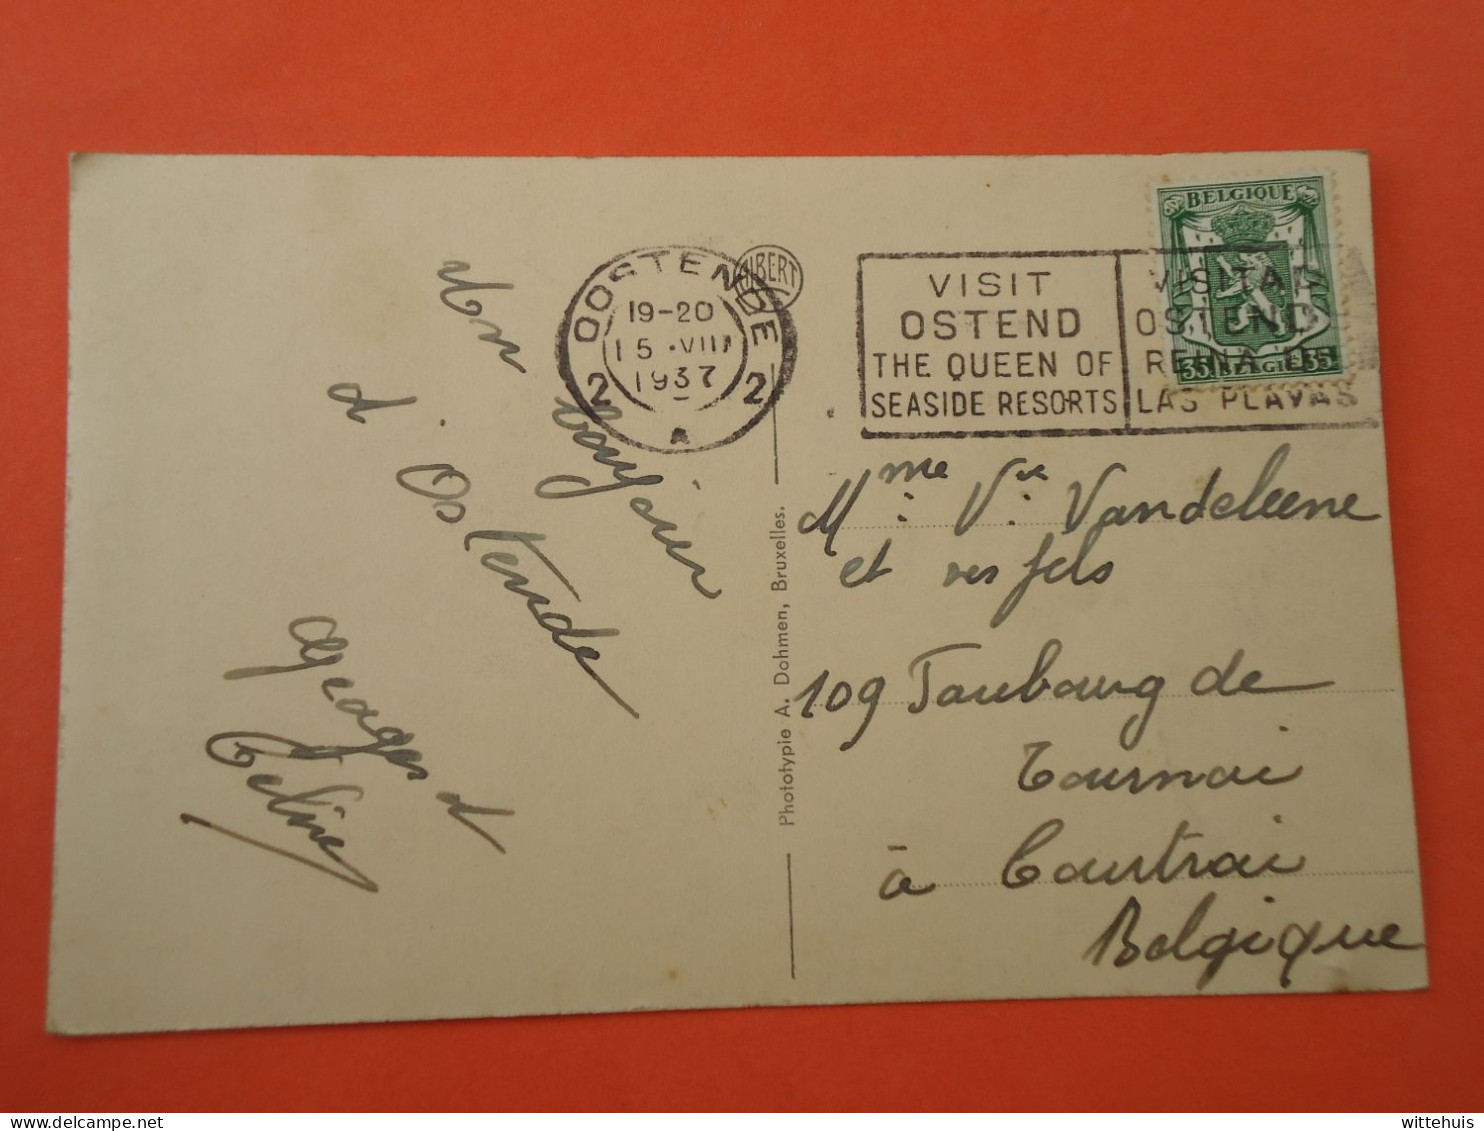 Un bonjour
d'Ostende
et
Celine
Phototypie A. Dohmen, Bruxelles.
ALBERT
OOSTENDE
19-20
15 · VIII
1937
2 2
VISIT
OSTEND
THE QUEEN OF
SEASIDE RESORTS
VISITAD
OSTEND
REINA DE
LAS PLAYAS
BELGIQUE
35 BELGIË 35
Mme Vve Vandeleene
et ses fils
109 Faubourg de
Tournai
à Courtrai
Belgique
wittehuis